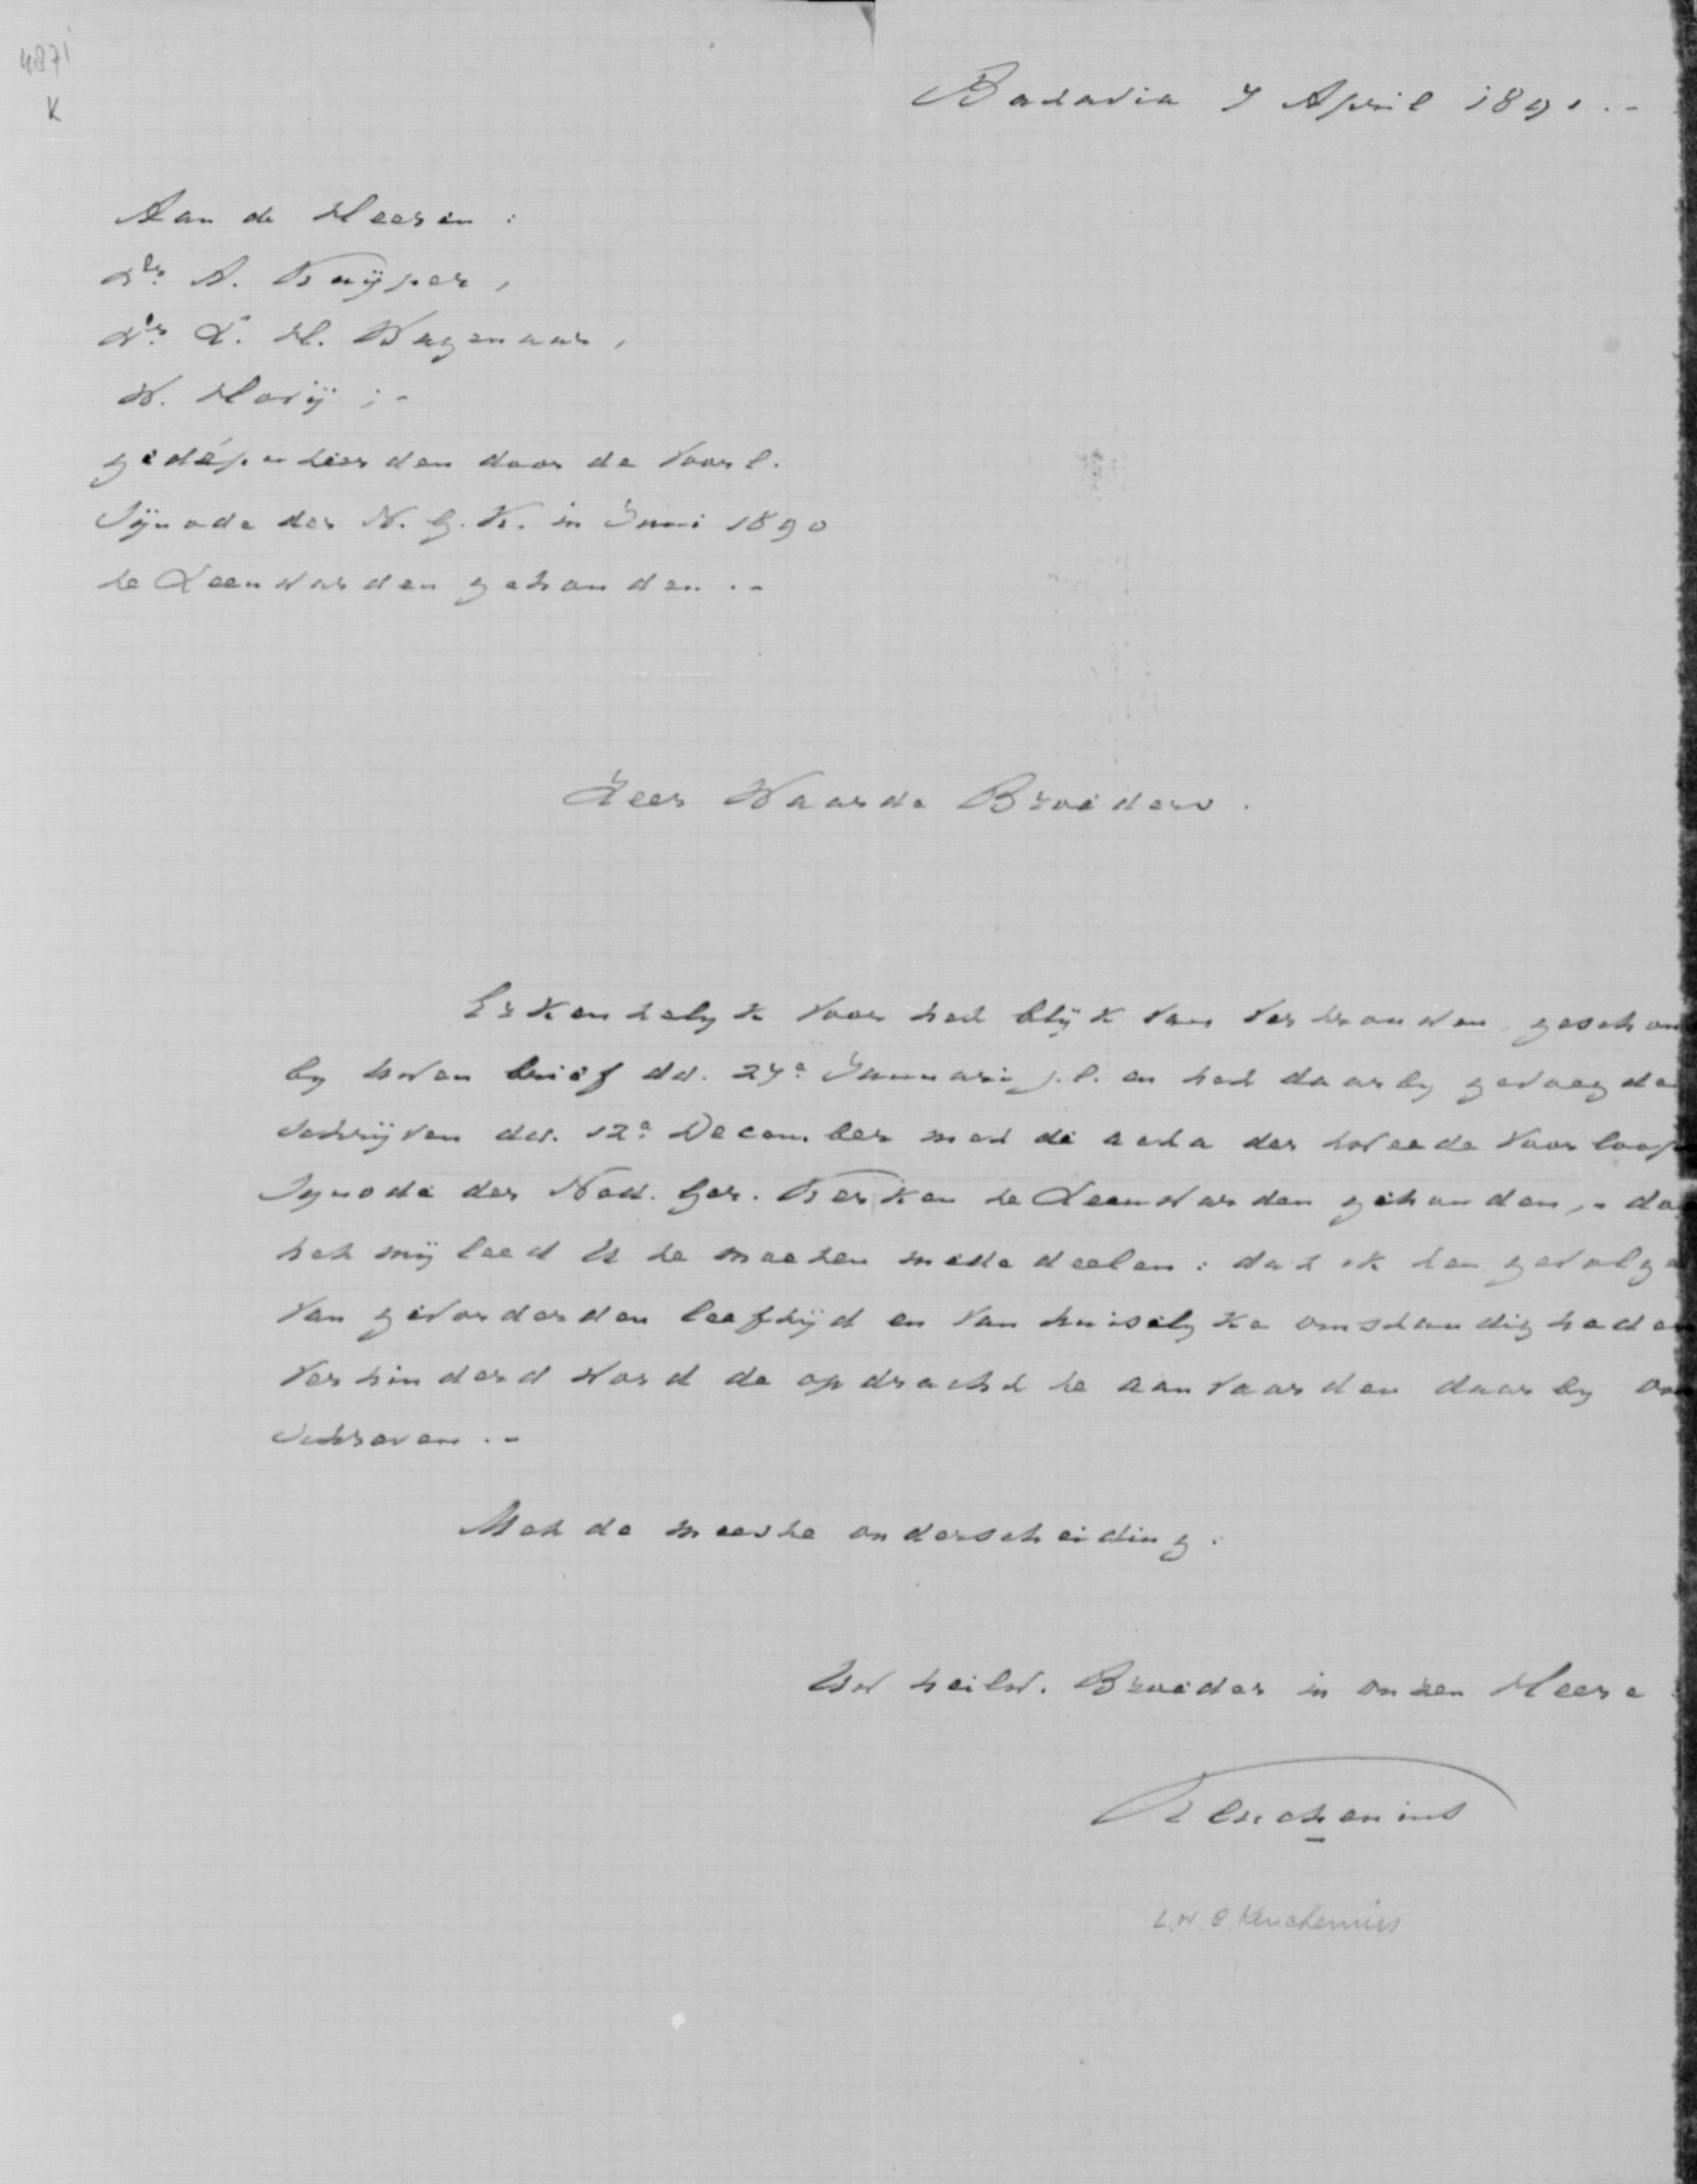 4871
K
Batavia 7 April 1891.-
Aan de Heeren:
Dr. A. Kuÿper,
Dr. L. H. Wagenaar,
W. Hovÿ;-
gedéputeerden door de Voorl.
Sÿnode der N. G. K. in Juni 1890
te Leeuwarden gehouden.-
Zeer Waarde Broeders.
Erkentelyk voor het blÿk van vertrouwen, geschon
by Uwen brief dd. 27e Januari j.l. en het daarby gevoegde
schrÿven dd. 12e December met de acta der tweede voorloop
Synode der Ned. Ger. Kerken te Leeuwarden gehouden,- do
het mÿ leed U te moeten mededeelen: dat ik ten gevolge
van gevorderden leeftÿd en van huiselyke omstandigheden
verhinderd word de opdracht te aanvaarden daarby om
schreven.-
Met de meeste onderscheiding.
Uw heilw. Broeder in onzen Heere
Keuchenius
L.W.C. Keuchenius